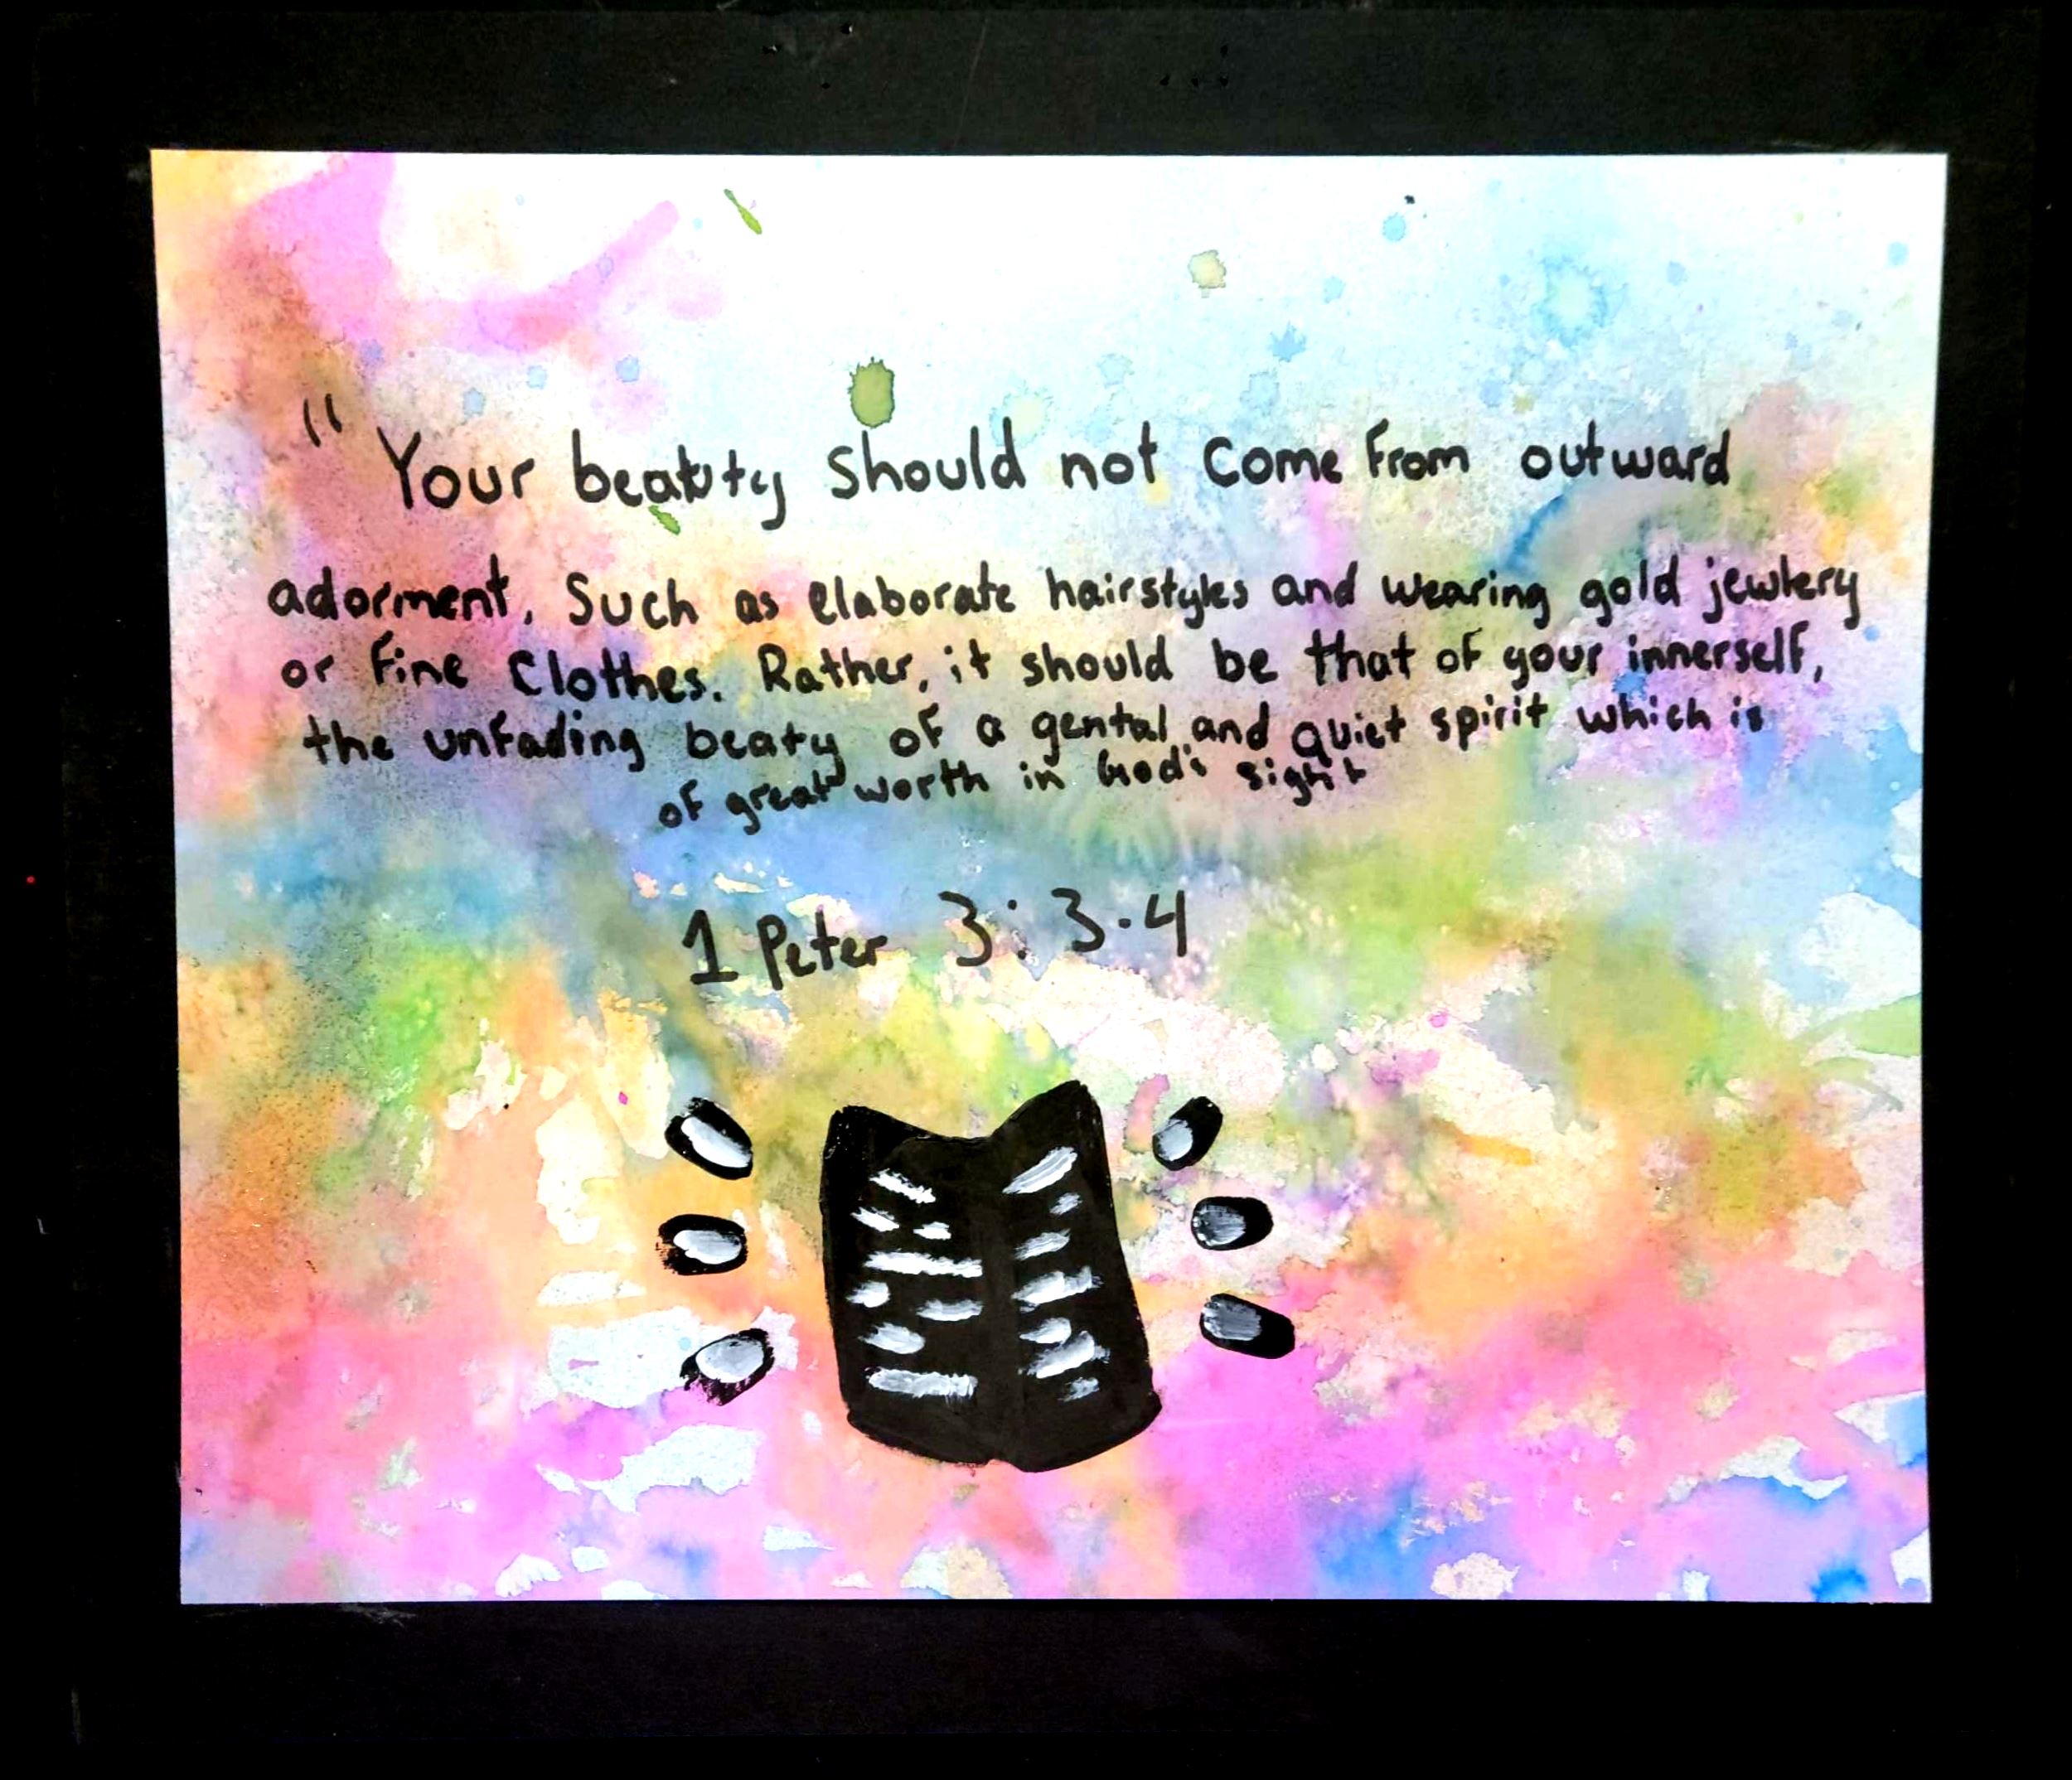 "Your beauty should not come from outward
adorment, Such as elaborate hairstyles and wearing gold jewlery
or fine clothes. Rather, it should be that of your innerself,
the unfading beaty of a gental and quiet spirit which is
of great worth in God's sight
1 Peter 3:3-4